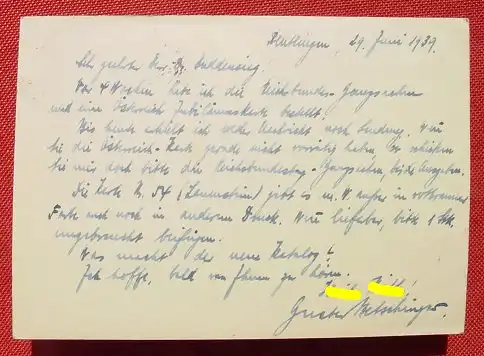 Reutlingen, 29. Juni 1939.
Sehr geehrter Herr Buddensieg.
Vor 4 Wochen habe ich die Reichsbundes-Ganzsachen
und eine Österreich Jubiläumskarte bestellt.
Bis heute erhielt ich weder Nachricht noch Sendung. Wenn
Sie die Österreich-Karte gerade nicht vorrätig haben, so schicken
Sie mir doch bitte die Reichsbundestag-Ganzsachen, beide Ausgaben.
Die Karte Nr. 54 gibt es m. W. außer in
Farbe auch noch in anderem Druck. Wenn lieferbar, bitte 1 Stk.
ungebraucht beifügen.
Was macht der neue Katalog?
Ich hoffe, bald von Ihnen zu hören.
Gustav